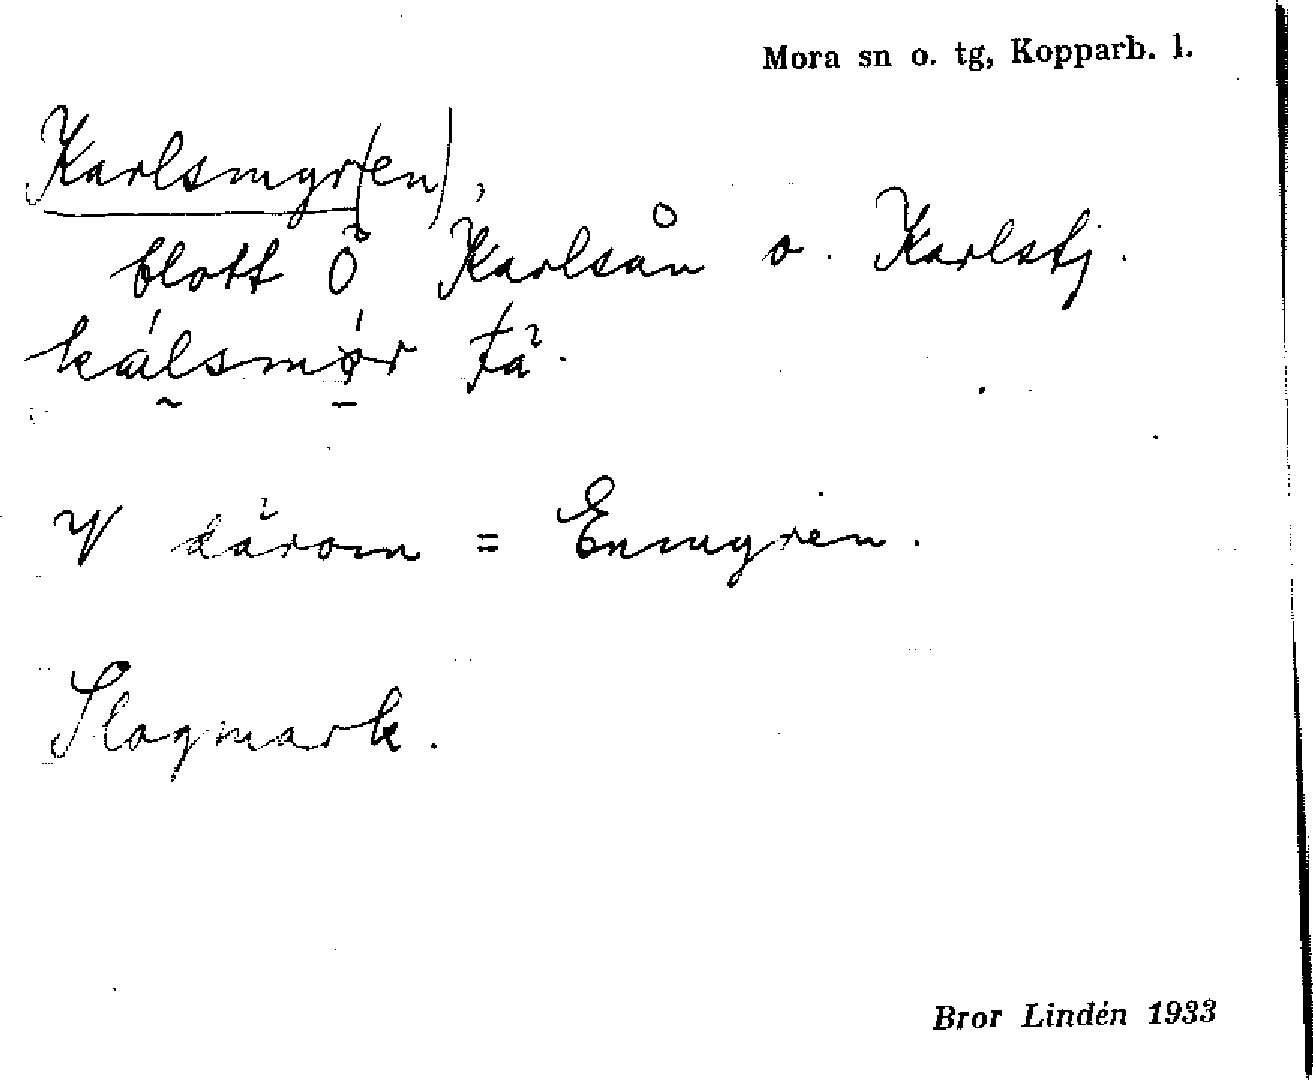 Mora sn o. tg, Kopparb. l.
Karlsmyr(en),
blott Ö Karlsån o. Karlstj.
kálsmýr fä.
V därom = Enmyren.
Slogmark.
Bror Lindén 1933